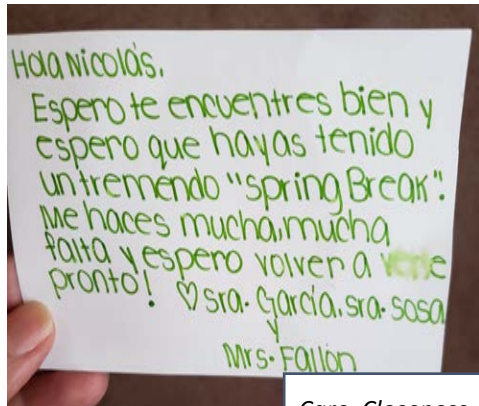 Hola Nicolás,
Espero te encuentres bien y
espero que hayas tenido
un tremendo "Spring Break".
Me haces mucha, mucha
falta y espero volver a verte
pronto! ♡ Sra. García, Sra. Sosa
y
Mrs. Fallon
Care, Closeness